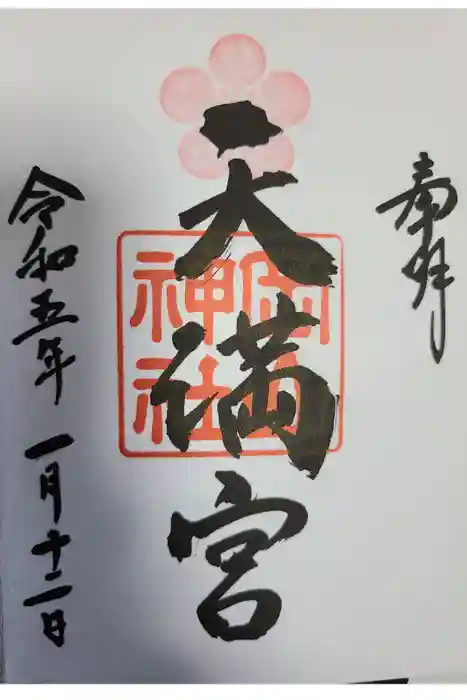 奉拝
天満宮
神社
令和五年一月十二日